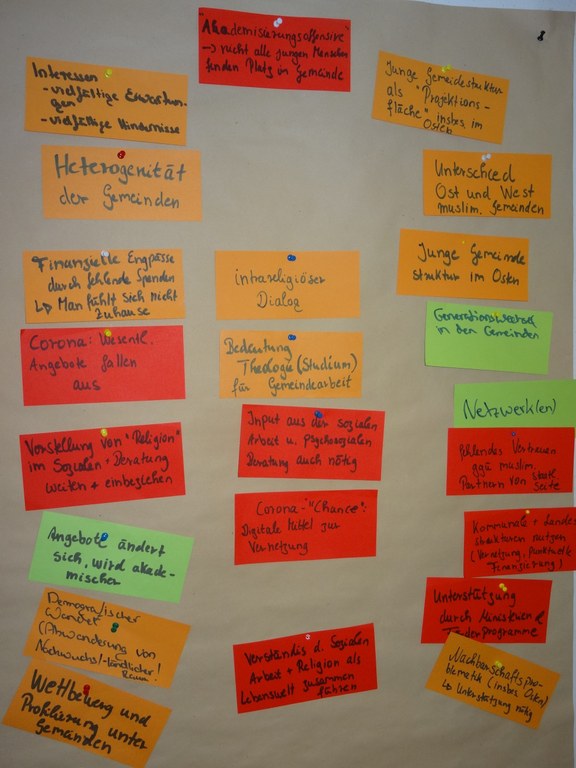 Interessen
- vielfältige Erwartun-
gen
- vielfältige Hindernisse
Heterogenität
der Gemeinden
Finanzielle Engpässe
durch fehlende Spenden
↳ Man fühlt sich nicht
zuhause
Corona: Wesentl.
Angebote fallen
aus
Vorstellung von "Religion"
im Sozialen + Beratung
weiten + einbeziehen
Angebote ändert
sich, wird akade-
mischer
Demografischer
Wandel
(Abwanderung von
Nachwuchs/-ländlicher
Raum
Wettbewerb und
Profilierung unter
Gemeinden
"Akademisierungsoffensive"
→ nicht alle jungen Menschen
finden Platz in Gemeinde
intrareligiöser
Dialog
Bedeutung
Theologie (Studium)
für Gemeindearbeit
Input aus der sozialen
Arbeit u. psychosozialen
Beratung auch nötig
Corona-"Chance":
Digitale Mittel zur
Vernetzung
Verständnis d. Sozialen
Arbeit + Religion als
Lebenswelt zusammen
führen
Junge Gemeindestruktur
als "Projektions-
fläche" insbes. im
Osten
Unterschied
Ost und West
muslim. Gemeinden
Junge Gemeinde
struktur im Osten
Generationswechsel
in den Gemeinden
Netzwerk(en)
Fehlendes Vertrauen
ggü muslim.
Partnern von staatl.
Seite
Kommunale + Landes
strukturen nutzen
(Vernetzung, punktuelle
Finanzierung)
Unterstützung
durch Ministerien &
Förderprogramme
Nachbarschaftspro-
blematik (insbes. Osten)
↳ Unterstützung nötig